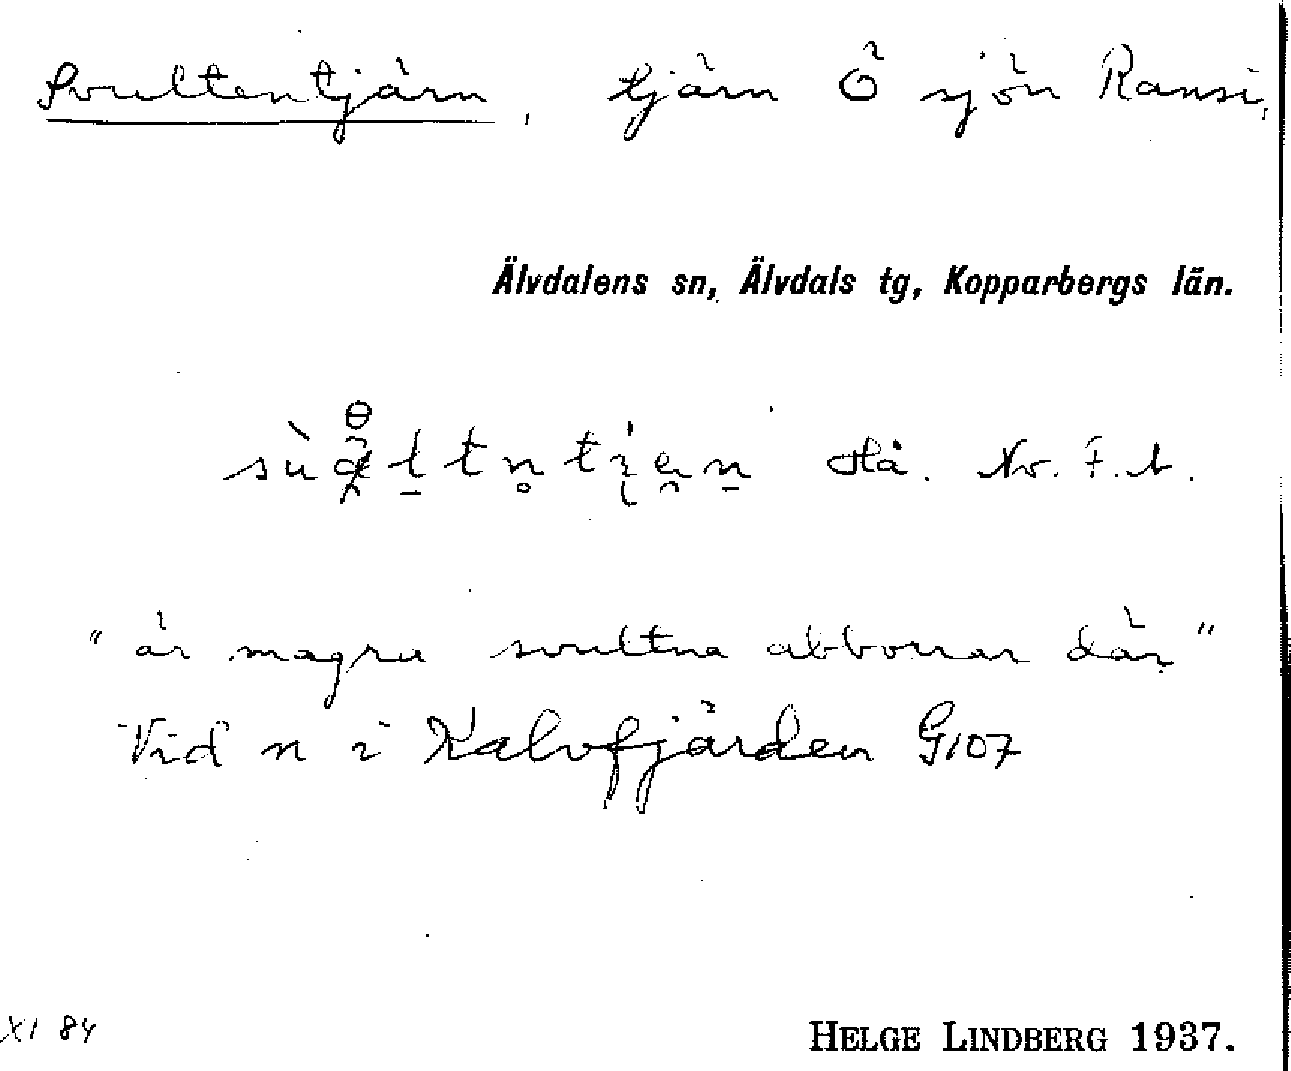 Svultentjärn, tjärn Ö sjön Ransi,
Älvdalens sn, Älvdals tg, Kopparbergs län.
Hå. Nv. F. A.
"är magra svultna abborrar där"
Vid n i Kalvfjärden G107
XI 84
HELGE LINDBERG 1937.